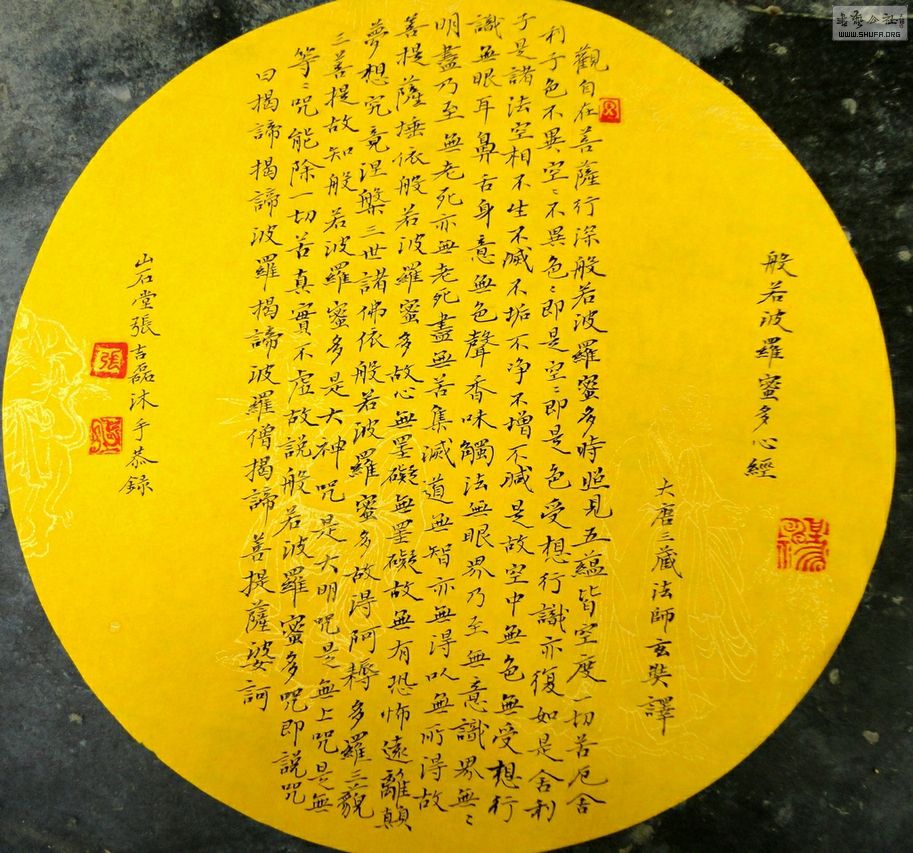 般若波羅蜜多心經
大唐三藏法師玄奘譯
觀自在菩薩行深般若波羅蜜多時照見五蘊皆空度一切苦厄舍
利子色不異空〻不異色〻即是空〻即是色受想行識亦復如是舍利
子是諸法空相不生不滅不垢不净不增不減是故空中無色無受想行
識無眼耳鼻舌身意無色聲香味觸法無眼界乃至無意識界無〻
明盡乃至無老死亦無老死盡無苦集滅道無智亦無得以無所得故
菩提薩埵依般若波羅蜜多故心無罣礙無罣礙故無有恐怖遠離顛
夢想究竟涅槃三世諸佛依般若波羅蜜多故得阿耨多羅三藐
三菩提故知般若波羅蜜多是大神咒是大明咒是無上咒是無
等〻咒能除一切苦真實不虛故説般若波羅蜜多咒即説咒
曰揭諦揭諦波羅揭諦波羅僧揭諦菩提薩婆訶
山石堂張吉磊沐手恭錄
張
WWW.SHUFA.ORG